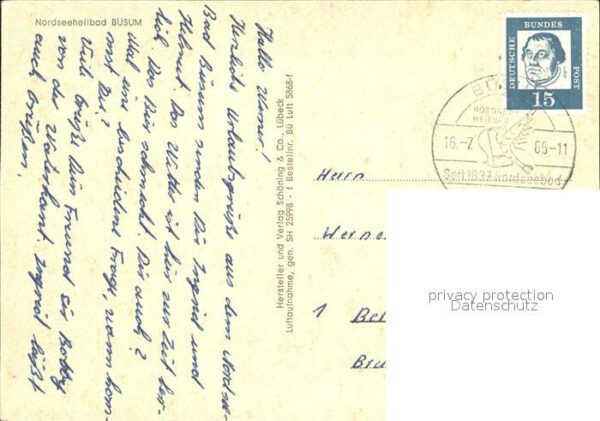 Nordseeheilbad BÜSUM
Hallo Werner!
Herzliche Urlaubsgrüße aus dem Nordsee
Bad Büsum senden Dir Ingrid und
Helmut. Das Wetter ist hier zur Zeit herr-
lich. Das Bier schmeckt. Dir auch?
Mal ein bescheidene Frage, wann kom-
mst Du?
Viele Grüße Dein Freund
von der Waterkant. Ingrid läßt
auch grüßen.
Hersteller und Verlag Schöning & Co., Lübeck
Luftaufnahme, gen. SH 25998 - f Bestellnr. BÜ Luft 5868-f
DEUTSCHE
BUNDES
POST
15
16.-7
65-11
Seit 1837 Nordseebad
Herrn
1
privacy protection
Datenschutz